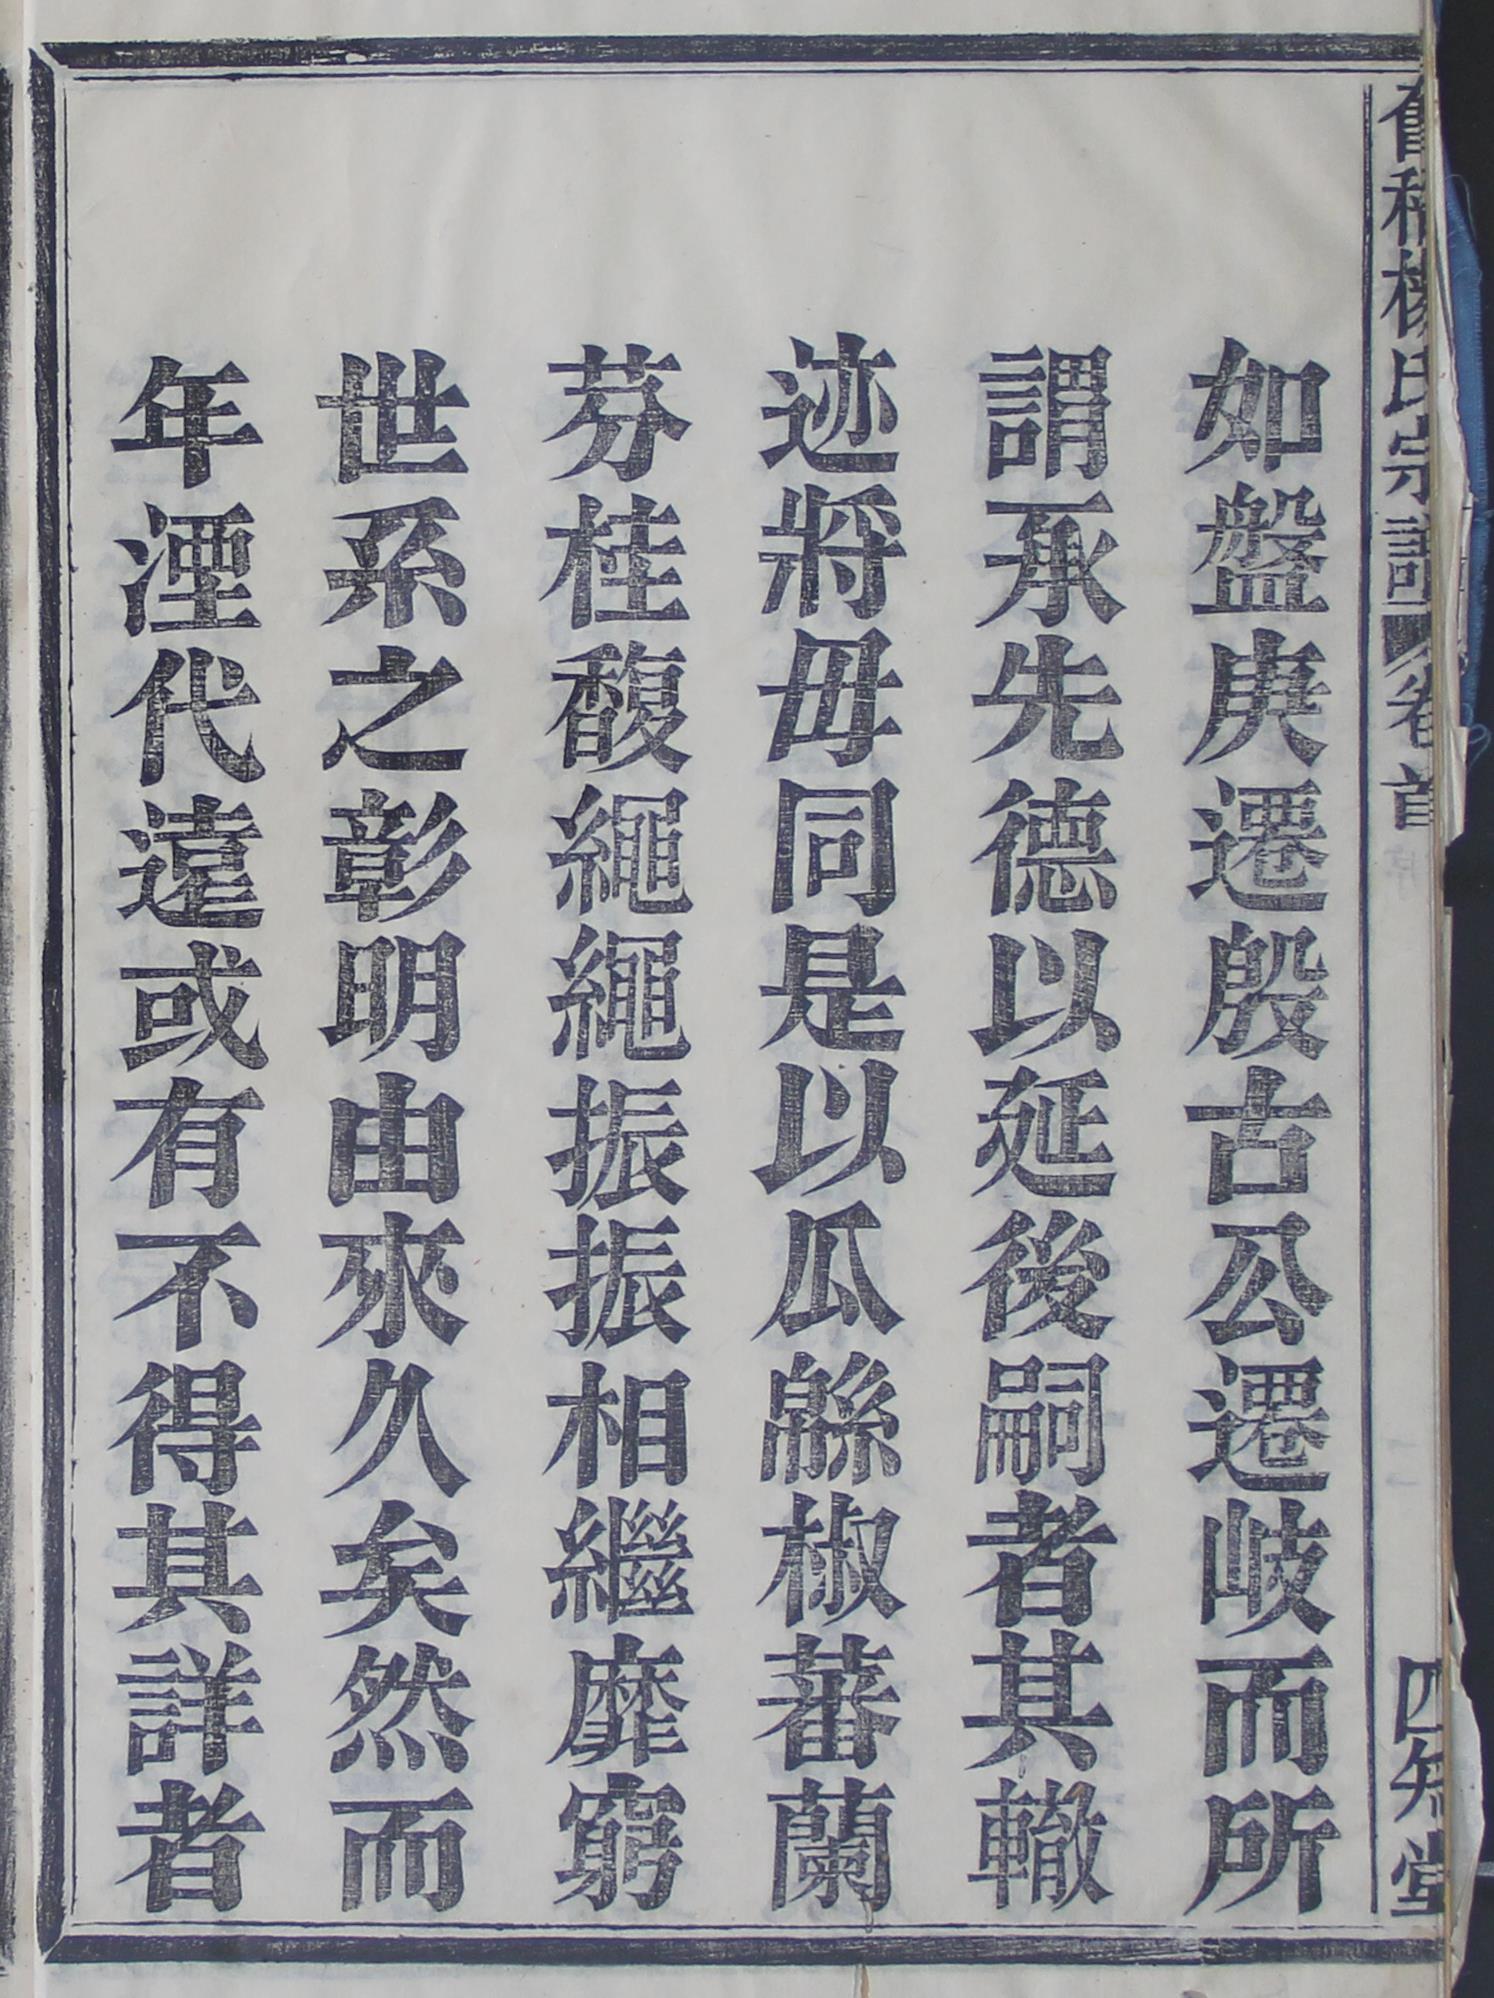 暨楊氏宗譜 卷首 序 二 四知堂
如盤庚遷殷古公遷岐而所
謂承先德以延後嗣者其轍
迹將毋同是以瓜緜椒蕃蘭
芬桂馥繩繩振振相繼靡窮
世系之彰明由來久矣然而
年湮代遠或有不得其詳者